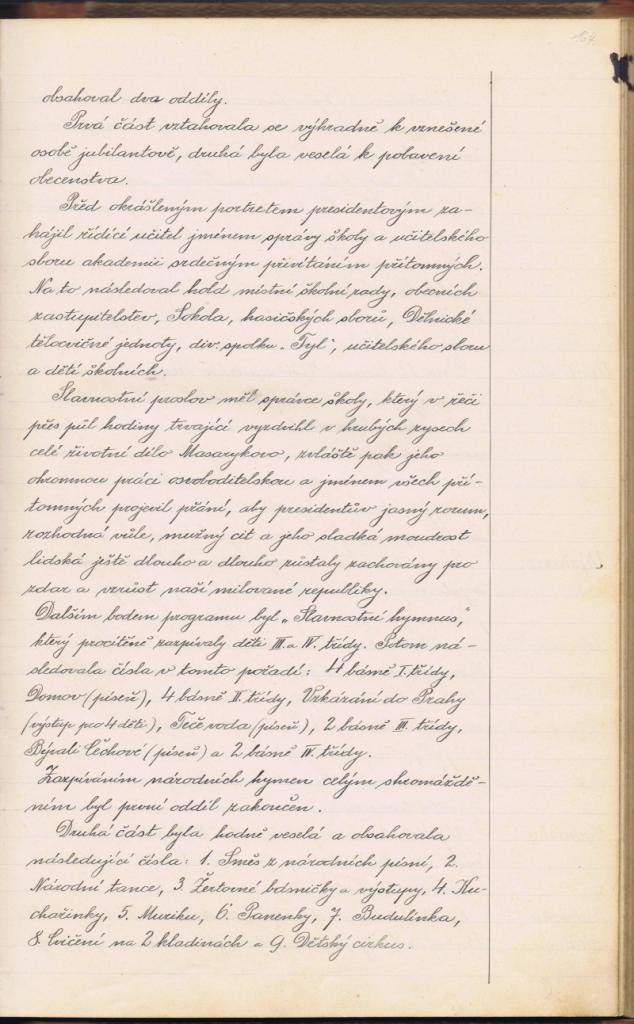 164.
obsahoval dva oddíly.
Prvá část vztahovala se výhradně k vznešené
osobě jubilantově, druhá byla veselá k pobavení
obecenstva.
Před okrášleným portretem presidentovým za-
hájil řídící učitel jménem správy školy a učitelského
sboru akademii srdečným přivítáním přítomných.
Na to následoval hold místní školní rady, obecních
zastupitelstev, Sokola, hasičských sborů, Dělnické
tělocvičné jednoty, div. spolku „Tyl", učitelského sboru
a dětí školních.
Slavnostní proslov měl správce školy, který v řeči
přes půl hodiny trvající vyzdvihl v hrubých rysech
celé životní dílo Masarykovo, zvláště pak jeho
ohromnou práci osvoboditelskou a jménem všech pří-
tomných projevil přání, aby presidentův jasný rozum,
rozhodná vůle, mužný cit a jeho sladká moudrost
lidská ještě dlouho a dlouho zůstaly zachovány pro
zdar a vzrůst naší milované republiky.
Dalším bodem programu byl „Slavnostní hymnus",
který procítěně zazpívaly děti III. a IV. třídy. Potom ná-
sledovala čísla v tomto pořadí: 4 básně I. třídy,
Domov (píseň), 4 básně II. třídy, Vzkázání do Prahy
(výstup pro 4 děti), Teče voda (píseň), 2 básně III. třídy,
Bývali Čechové (píseň) a 2 básně IV. třídy.
Zazpíváním národních hymen celým shromáždě-
ním byl první oddíl zakončen.
Druhá část byla hodně veselá a obsahovala
následující čísla: 1. Směs z národních písní, 2.
Národní tance, 3. Žertovné básničky a výstupy, 4. Ku-
chařinky, 5. Muziku, 6. Panenky, 7. Budulínka,
8. Cvičení na 2 kladinách a 9. Dětský cirkus.